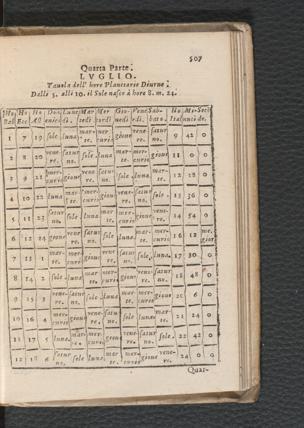 507
Quarta Parte.
LVGLIO.
Tauola dell' hore Planetarie Diurne.
Dalli 5. alli 20. il Sole nasce à hore 8. m. 24.
1 7 19 sole luna marte. mercurio gioue venere. saturno. 9 42 0
2 8 20 venere. saturno. sole luna marte. mercurio gioue 11 0 0
3 9 21 mercurio gioue venere. saturno. sole luna marte. 12 18 0
4 10 22 luna marte. mercurio gioue venere. saturno. sole 13 36 0
5 11 23 saturno. sole luna marte. mercurio gioue venere. 14 54 0
6 12 24 gioue venere. saturno. sole luna marte. mercurio 16 12
7 13 1 marte. mercurio gioue venere. saturno. sole luna 17 30 0
8 14 2 sole luna marte. mercurio gioue venere. saturno. 18 48 0
9 15 3 venere. saturno. sole luna marte. mercurio gioue 20 6 0
10 16 4 mercurio gioue venere. saturno. sole luna marte. 21 24 0
11 17 5 luna marte. mercurio gioue venere. saturno. sole 22 42 0
12 18 6 saturno. sole luna marte. mercurio gioue venere. 24 0 0
Quar-